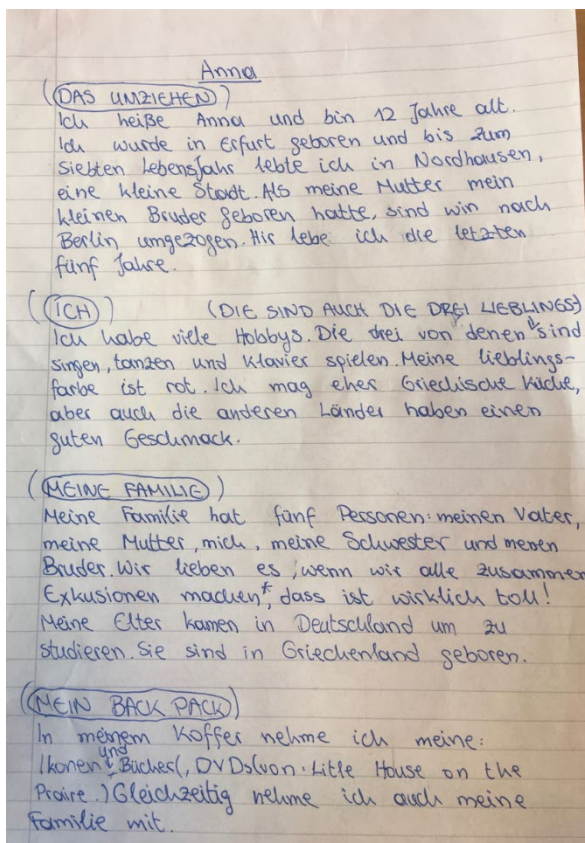 Anna
(DAS UMZIEHEN)
Ich heiße Anna und bin 12 Jahre alt.
Ich wurde in Erfurt geboren und bis zum
siebten Lebensjahr lebte ich in Nordhausen,
eine kleine Stadt. Als meine Mutter mein
kleinen Bruder geboren hatte, sind win nach
Berlin umgezogen. Hir lebe ich die letzten
fünf Jahre.
(ICH) (DIE SIND AUCH DIE DREI LIEBLINGS)
Ich habe viele Hobbys. Die drei von denen sind
singen, tanzen und Klavier spielen. Meine lieblings-
farbe ist rot. Ich mag eher Griechische Küche,
aber auch die anderen Länder haben einen
guten Geschmack.
(MEINE FAMILIE)
Meine Familie hat fünf Personen: meinen Vater,
meine Mutter, mich, meine Schwester und menen
Bruder. Wir lieben es, wenn wir alle zusammen
Exkusionen machen*, dass ist wirklich toll!
Meine Elter kamen in Deutschland um zu
studieren. Sie sind in Griechenland geboren.
(MEIN BACK PACK)
In meinem Koffer nehme ich meine:
Ikonen und Bücher(, DVDs(von: Litle House on the
Praire.) Gleichzeitig nehme ich auch meine
Familie mit.